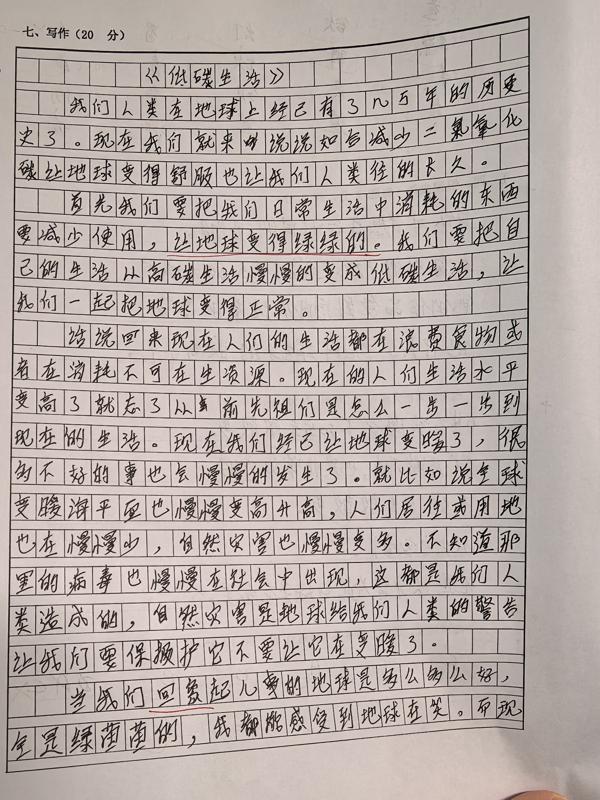 七、写作（20 分）
《低碳生活》
我们人类在地球上经已有了几万年的历史
史了。现在我们就来说说如何减少二氧化
碳让地球变得舒服也让我们人类住的长久。
首先我们要把我们日常生活中消耗的东西
要减少使用，让地球变得绿绿的。我们要把自
己的生活从高碳生活慢慢的变成低碳生活，让
我们一起把地球变得正常。
话说回来现在人们的生活都在浪费食物或
者在消耗不可在生资源。现在的人们生活水平
变高了就忘了从前先祖们是怎么一步一步到
现在的生活。现在我们经已让地球变暖了，很
多不好的事也会慢慢的发生了。就比如说全球
变暖海平面也慢慢变高升高，人们居住或用地
也在慢慢少，自然灾害也慢慢变多。不知道那
里的病毒也慢慢在社会中出现，这都是我们人
类造成的，自然灾害是地球给我们人类的警告
让我们要保护它不要让它在变暖了。
当我们回象起儿事的地球是多么多么好，
全是绿茵茵的，我都能感受到地球在笑。而现